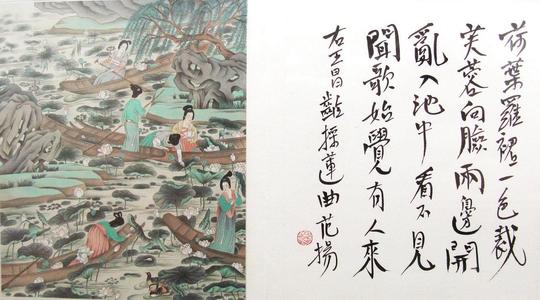 荷葉羅裙一色裁
芙蓉向臉兩邊開
亂入池中看不見
聞歌始覺有人來
右王昌齡採蓮曲范揚